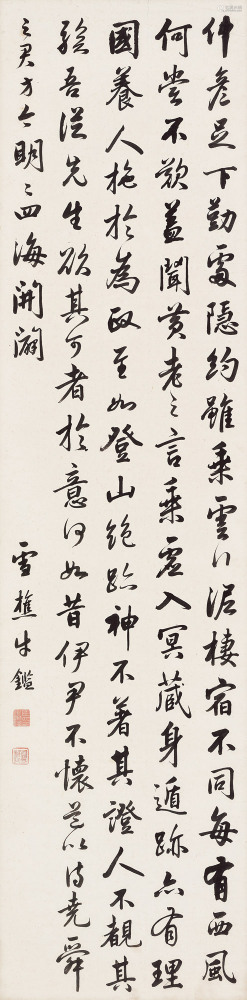 仲彥足下勤處隱約雖乘雲行泥棲宿不同每有西風
何嘗不歎蓋聞黃老之言乘虛入冥藏身遁跡亦有理
國養人施於為政至如登山絕跡神不著其證人不覩其
驗吾從先生欲其可者於意何如昔伊尹不懷道以待堯舜
之君方今明々四海開闢
雪樵牛鑑